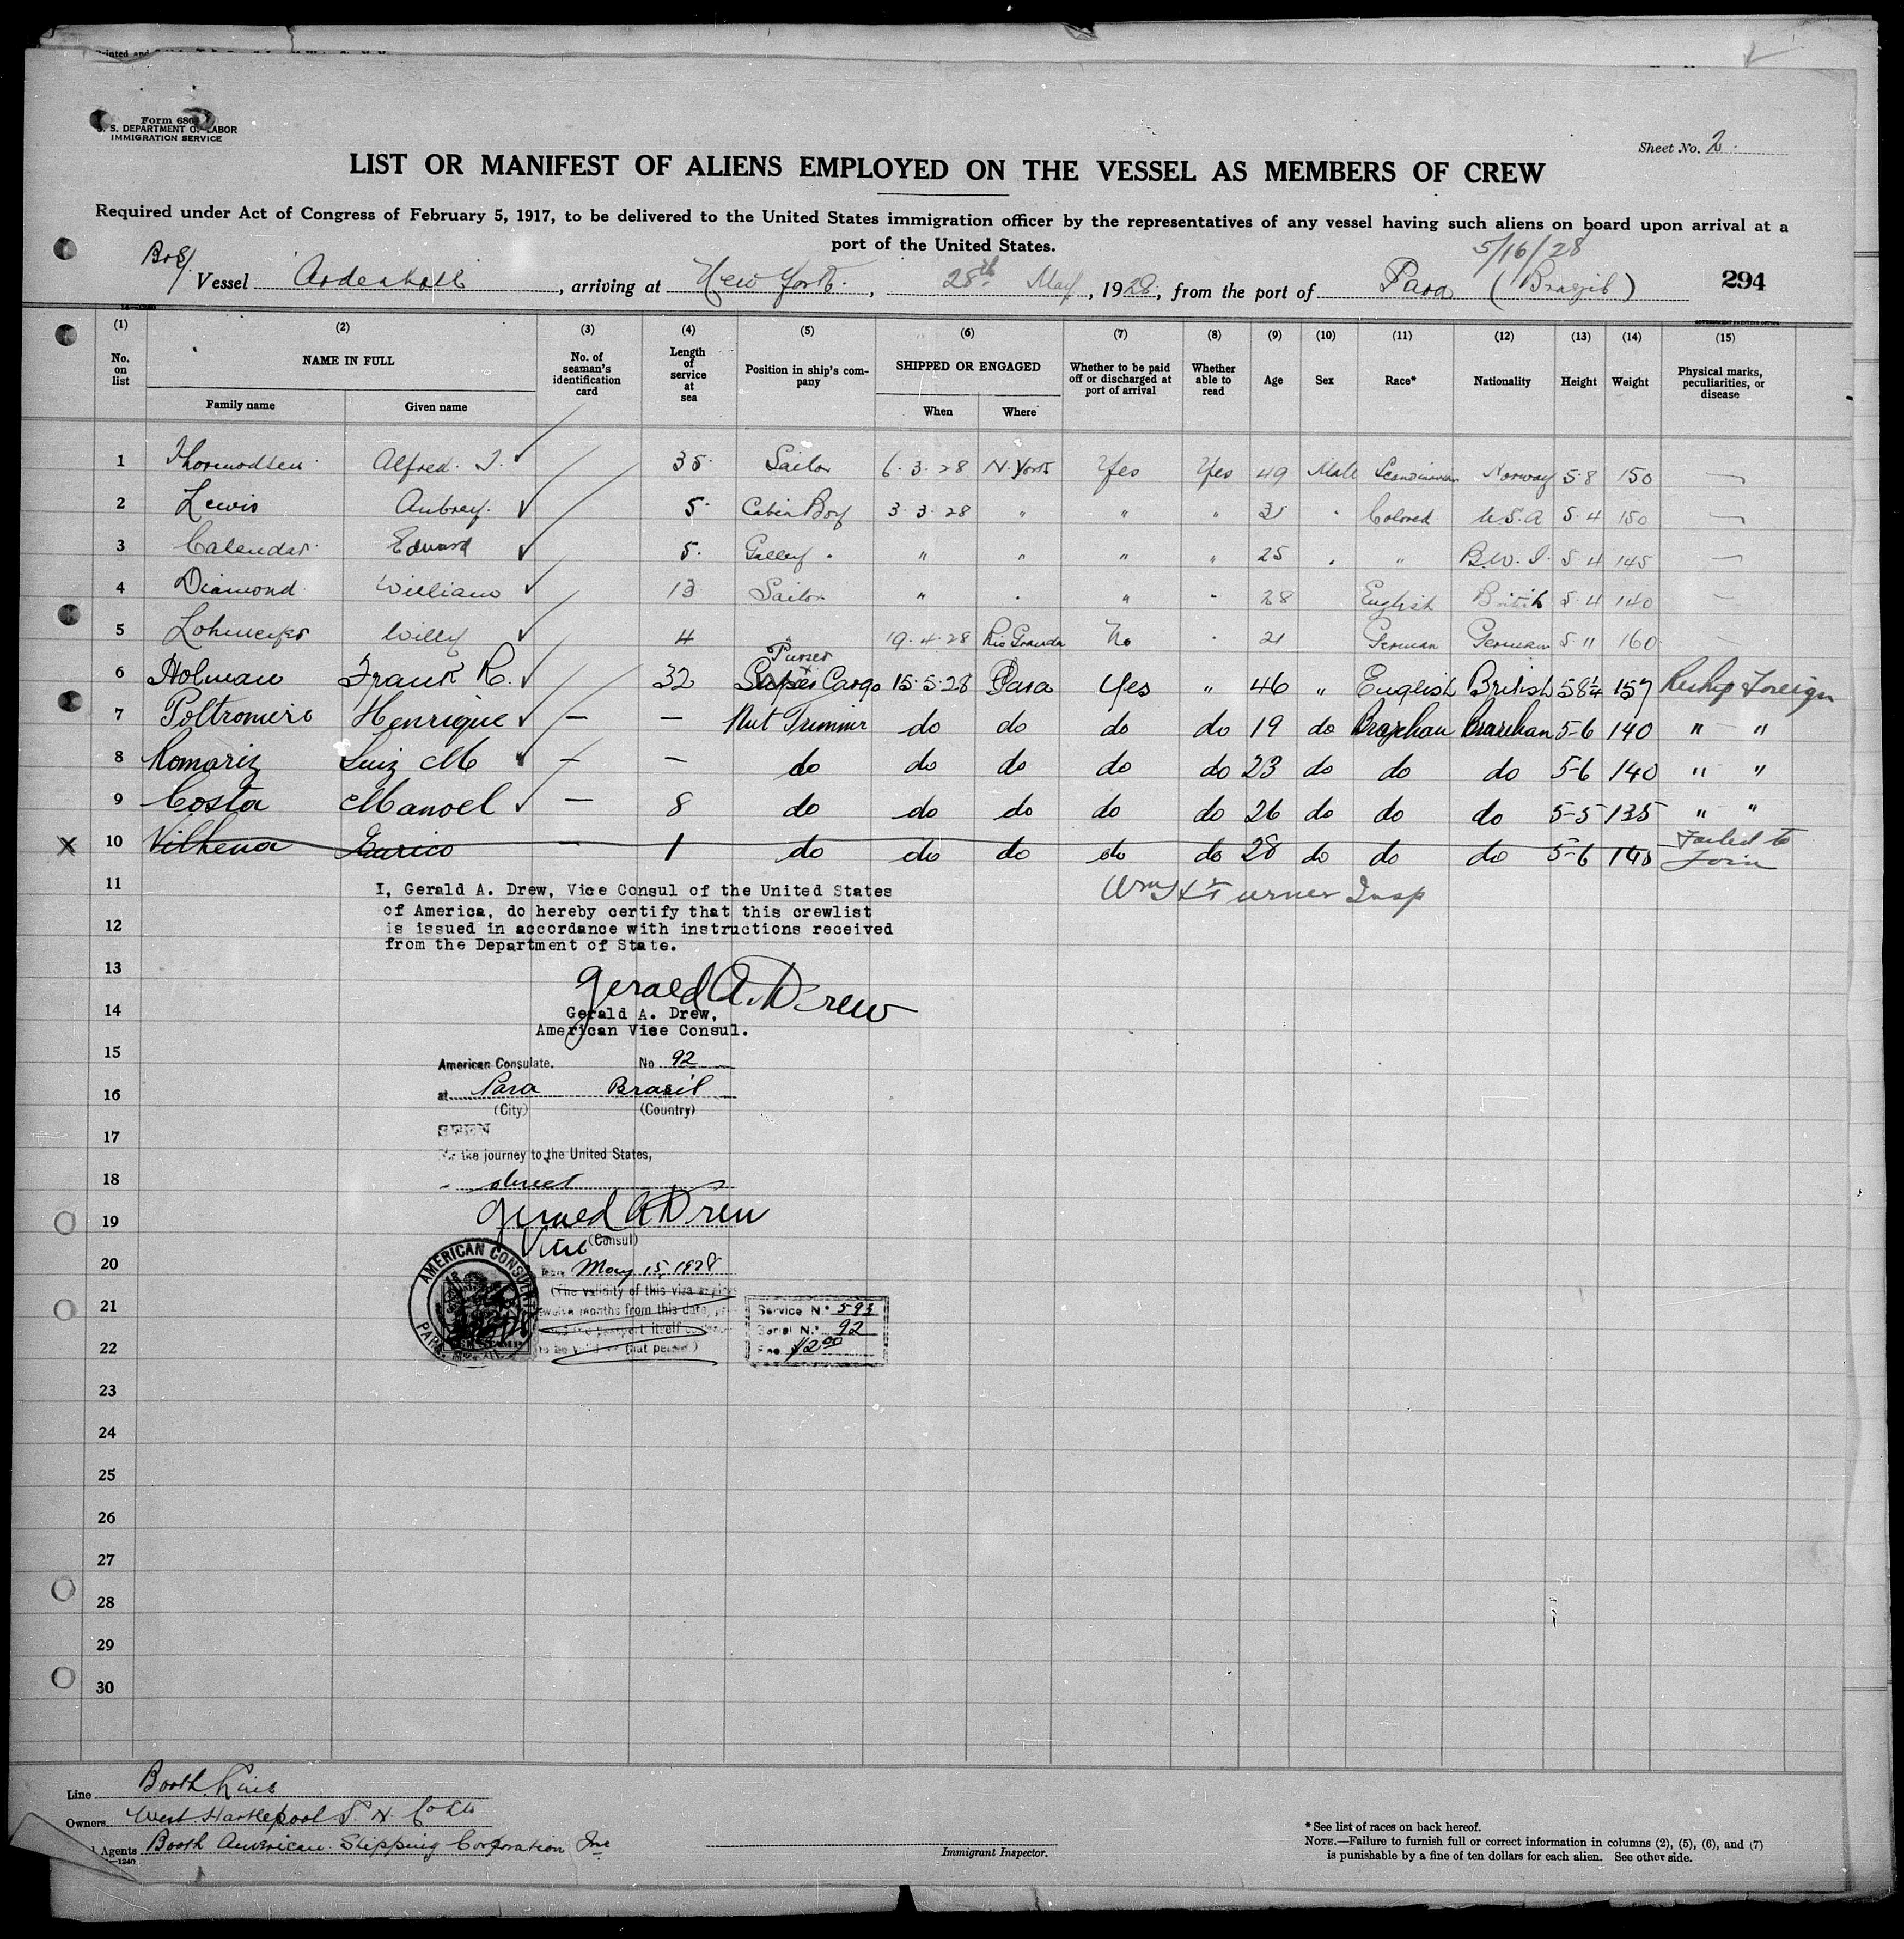 Form 680
U. S. DEPARTMENT OF LABOR
IMMIGRATION SERVICE
Sheet No. 2
LIST OR MANIFEST OF ALIENS EMPLOYED ON THE VESSEL AS MEMBERS OF CREW
Required under Act of Congress of February 5, 1917, to be delivered to the United States immigration officer by the representatives of any vessel having such aliens on board upon arrival at a
port of the United States.
5/16/28
Vessel Ardenhall, arriving at New York, 28th May, 1928, from the port of Para (Brazil) 294
(1) (2) (3) (4) (5) (6) (7) (8) (9) (10) (11) (12) (13) (14) (15)
No. on list NAME IN FULL No. of seaman's identification card Length of service at sea Position in ship's company SHIPPED OR ENGAGED Whether to be paid off or discharged at port of arrival Whether able to read Age Sex Race* Nationality Height Weight Physical marks, peculiarities, or disease
Family name Given name When Where
1 Thormodsen Alfred. T. 35 Sailor 6-3-28 N. York Yes Yes 49 Male Scandinavian Norway 5-8 150 —
2 Lewis Aubrey. 5 Cabin Boy 3-3-28 " " " 31 " Colored U.S.A 5-4 150 —
3 Calendar Edward 5. Galley " " " " " 25 " " B.W.I. 5-4 145 —
4 Diamond William 13 Sailor " " " " 28 English British 5-4 140 —
5 Lohmeyer Willy 4 " 19-4-28 Rio Grande No " 21 German German 5-11 160 —
Purser
6 Holman Frank R. 32 Super Cargo 15-5-28 Para Yes " 46 " English British 5 8¼ 157 Reship Foreign
7 Poltromiere Henrique — — Nut Trimmer do do do do 19 do Brazilian Brazilian 5-6 140 " "
8 Romariz Luiz M — — do do do do do 23 do do do 5-6 140 " "
9 Costa Manoel — 8 do do do do do 26 do do do 5-5 135 " "
10 Vilhena Eurico — 1 do do do do do 28 do do do 5-6 140 Failed to Join
11
I, Gerald A. Drew, Vice Consul of the United States
of America, do hereby certify that this crewlist
is issued in accordance with instructions received
from the Department of State.
Wm H Turner Insp
12
13
Gerald A. Drew
14
Gerald A. Drew,
American Vice Consul.
15
American Consulate. No 92
16
at Para Brasil
(City) (Country)
17
SEEN
For the journey to the United States,
18
direct
19
Gerald A Drew
Vice (Consul)
20
AMERICAN CONSULATE
PARA, BRAZIL
May 15, 1928
(The validity of this visa expires
21
twelve months from this date, pro
Service No. 593
Serial No. 92
22
to be valid for that period)
Fee $2.00
23
24
25
26
27
28
29
30
Line Booth Line
Owners West Hartlepool S. N. Co Ltd
Agents Booth American Shipping Corporation Inc
Immigrant Inspector.
* See list of races on back hereof.
NOTE.—Failure to furnish full or correct information in columns (2), (5), (6), and (7)
is punishable by a fine of ten dollars for each alien. See other side.